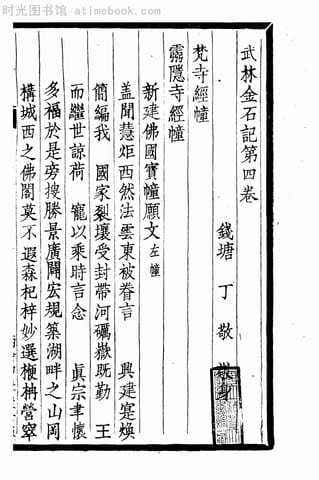 时光图书馆 atimebook.com
武林金石記第四卷
錢塘 丁敬 敬身
梵寺經幢
靈隱寺經幢
新建佛國寶幢願文 左幢
蓋聞慧炬西然法雲東被眷言 興建寔煥
簡編我 國家裂壤受封帶河礪嶽既勤 王
而繼世諒荷 寵以乘時言念 眞宗聿懷
多福於是旁搜勝景廣闢宏規築湖畔之山岡
構城西之佛閣莫不遐森杞梓妙選楩柟營窣